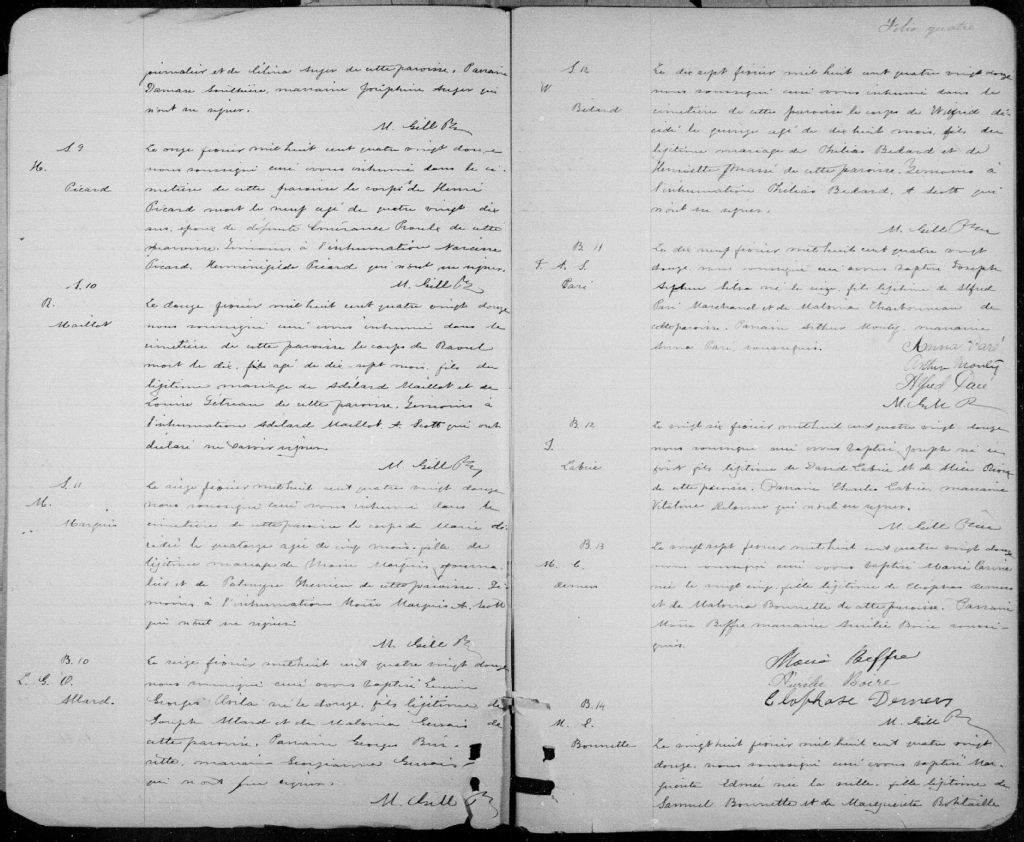 journalier et de Célina Auger de cette paroisse. Parrain
Damase Soulière, marraine Joséphine Auger qui
n'ont su signer.
M. Gill Ptre
S. 9
H.
Picard
Le onze février mil huit cent quatre vingt douze
nous soussigné curé avons inhumé dans le ci-
metière de cette paroisse le corps de Henri
Picard mort le neuf agé de quatre vingt dix
ans, époux de défunte Emérance Proulx de cette
paroisse. Témoins à l'inhumation Narcisse
Picard. Herménégilde Picard qui n'ont su signer.
M. Gill Ptre
S. 10
R.
Maillot
Le douze février mil huit cent quatre vingt douze
nous soussigné curé avons inhumé dans le
cimetière de cette paroisse le corps de Raoul
mort le dix, fils agé de dix-sept mois, fils du
légitime mariage de Adélard Maillot et de
Louise Gétreau de cette paroisse. Témoins à
l'inhumation Adélard Maillot A. Scott qui ont
déclaré ne savoir signer.
M. Gill Ptre
S. 11
M.
Marquis
Le seize février mil huit cent quatre vingt douze
nous soussigné curé avons inhumé dans le
cimetière de cette paroisse le corps de Marie dé-
cédée le quatorze agée de cinq mois, fille du
légitime mariage de Moïse Marquis journa-
lier et de Therrien de cette paroisse. Té-
moins à l'inhumation Moïse Marquis A. Scott
qui n'ont su signer.
M. Gill Ptre
B. 10
L. G. O.
Allard.
Le seize février mil huit cent quatre vingt douze
nous soussigné curé avons baptisé Lucien
Georges Ovila né le douze, fils légitime de
Joseph Allard et de Malvina Gervais de
cette paroisse. Parrain Georges
marraine Georgianna Gervais
qui n'ont su signer.
M. Gill Ptre
Folio quatre
S. 12
W.
Bédard
Le dix sept février mil huit cent quatre vingt douze
nous soussigné curé avons inhumé dans le
cimetière de cette paroisse le corps de Wilfred dé-
cédé le quinze agé de dix huit mois, fils du
légitime mariage de Philias Bédard et de
Henriette Massé de cette paroisse. Témoins à
l'inhumation Philias Bedard, A Scott qui
n'ont su signer.
M. Gill Ptre
B. 11
J. A. S.
Paré
Le dix neuf février mil huit cent quatre vingt
douze, nous soussigné curé avons baptisé Joseph
né le seize, fils légitime de Alfred
Paré Marchand et de Malvina Charbonneau de
cette paroisse. Parrain Arthur Monty, marraine
Anna Paré, soussignés.
Anna Paré
Arthur Monty
Alfred Paré
M. Gill Ptre
B. 12
J.
Labrie
Le vingt six février mil huit cent quatre vingt douze
nous soussigné curé avons baptisé Joseph né ce
jour fils légitime de David Labrie et de Alice
de cette paroisse. Parrain Charles Labrie, marraine
qui n'ont su signer.
M. Gill Ptre
B. 13
M. C.
Demers
Le vingt sept février mil huit cent quatre vingt douze
nous soussigné curé avons baptisé Marie
née le vingt cinq, fille légitime de Cléophas Demers
et de Malvina Bonnette de cette paroisse. Parrain
Moïse Beffre marraine Aurélie Boire soussi-
gnés.
Moïse Beffre
Aurélie Boire
Cléophase Demers
M. Gill Ptre
B. 14
M. E.
Bonnette
Le vingt huit février mil huit cent quatre vingt
douze, nous soussigné curé avons baptisé Mar-
guerite Edmée née la veille, fille légitime de
Samuel Bonnette et de Marguerite Robitaille